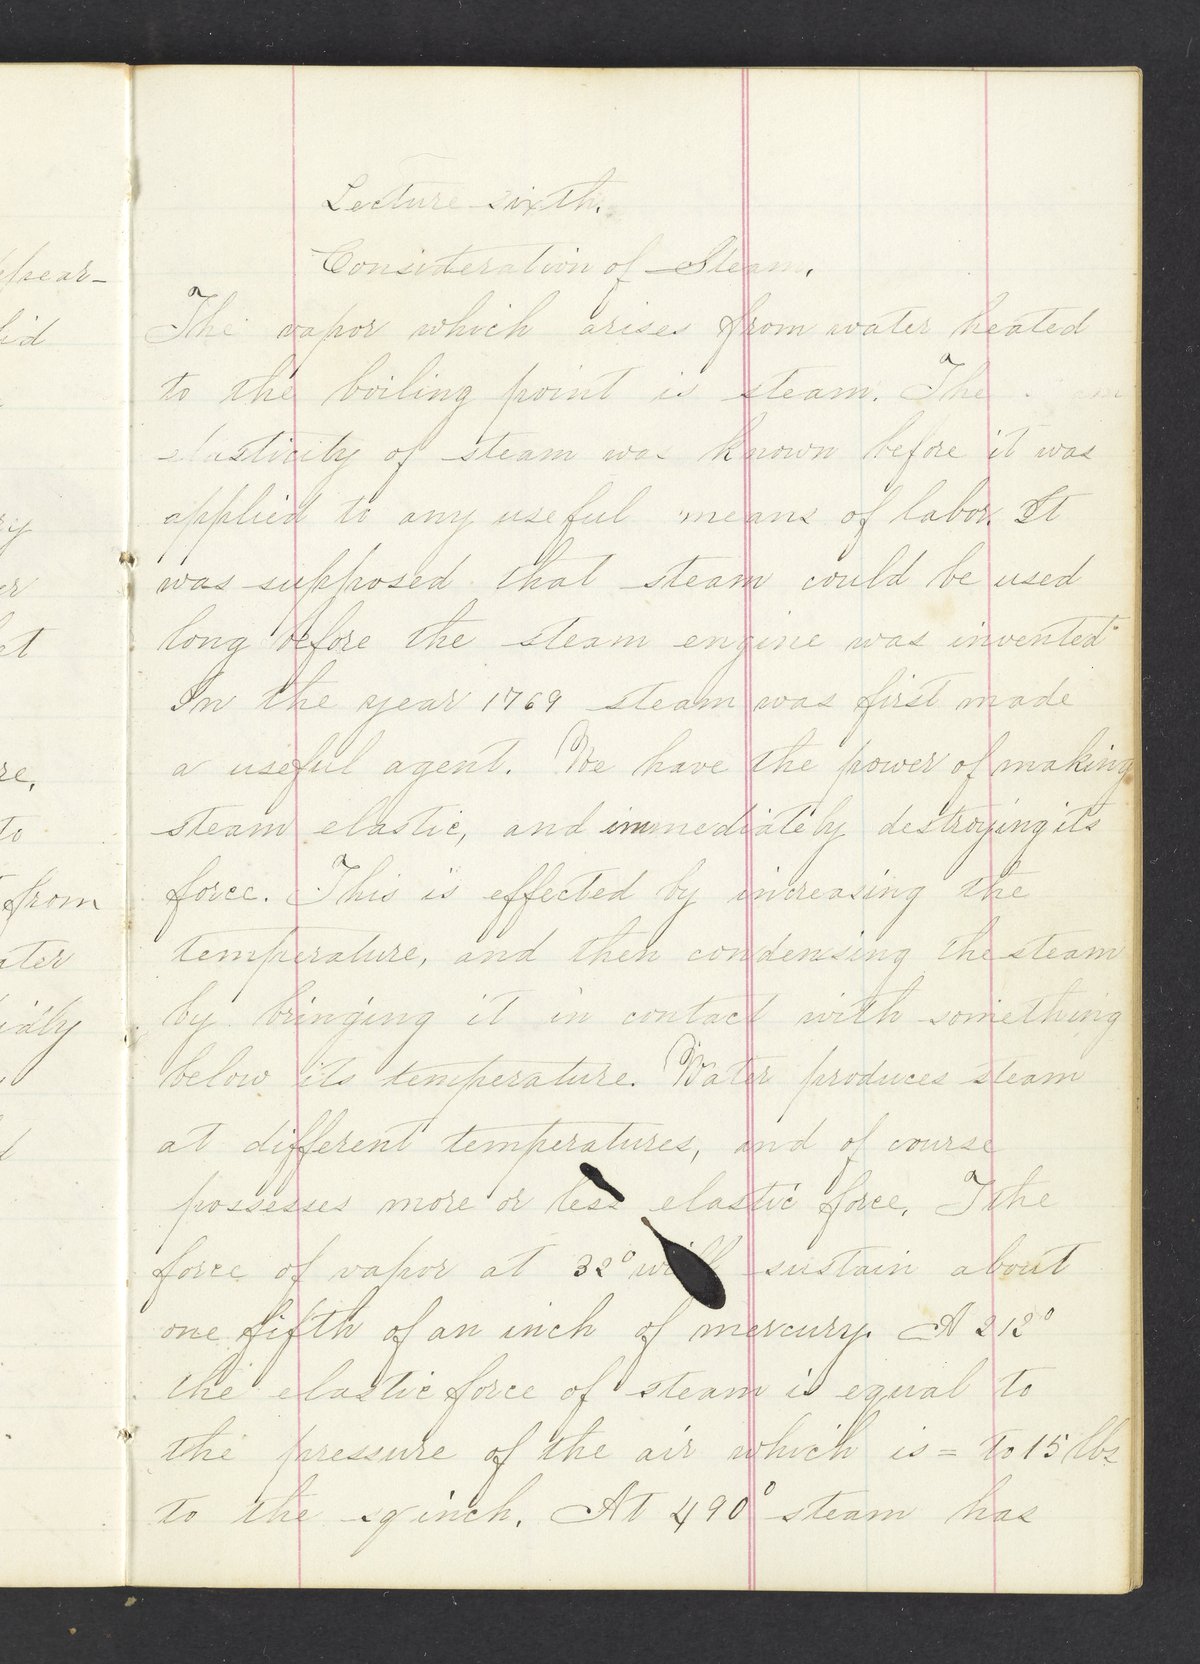 Lecture sixth.
Consideration of Steam.
The vapor which arises from water heated
to the boiling point is steam. The
elasticity of steam was known before it was
applied to any useful means of labor. It
was supposed that steam could be used
long before the steam engine was invented
In the year 1769 steam was first made
a useful agent. We have the power of making
steam elastic, and immediately destroying its
force. This is effected by increasing the
temperature, and then condensing the steam
by bringing it in contact with something
below its temperature. Water produces steam
at different temperatures, and of course
possesses more or less elastic force. The
force of vapor at 32° will sustain about
one fifth of an inch of mercury. A 212°
the elastic force of steam is equal to
the pressure of the air which is = to 15 lbs
to the sq inch. At 490° steam has
pear-
id
ry
er
at
re,
to
from
ater
idly